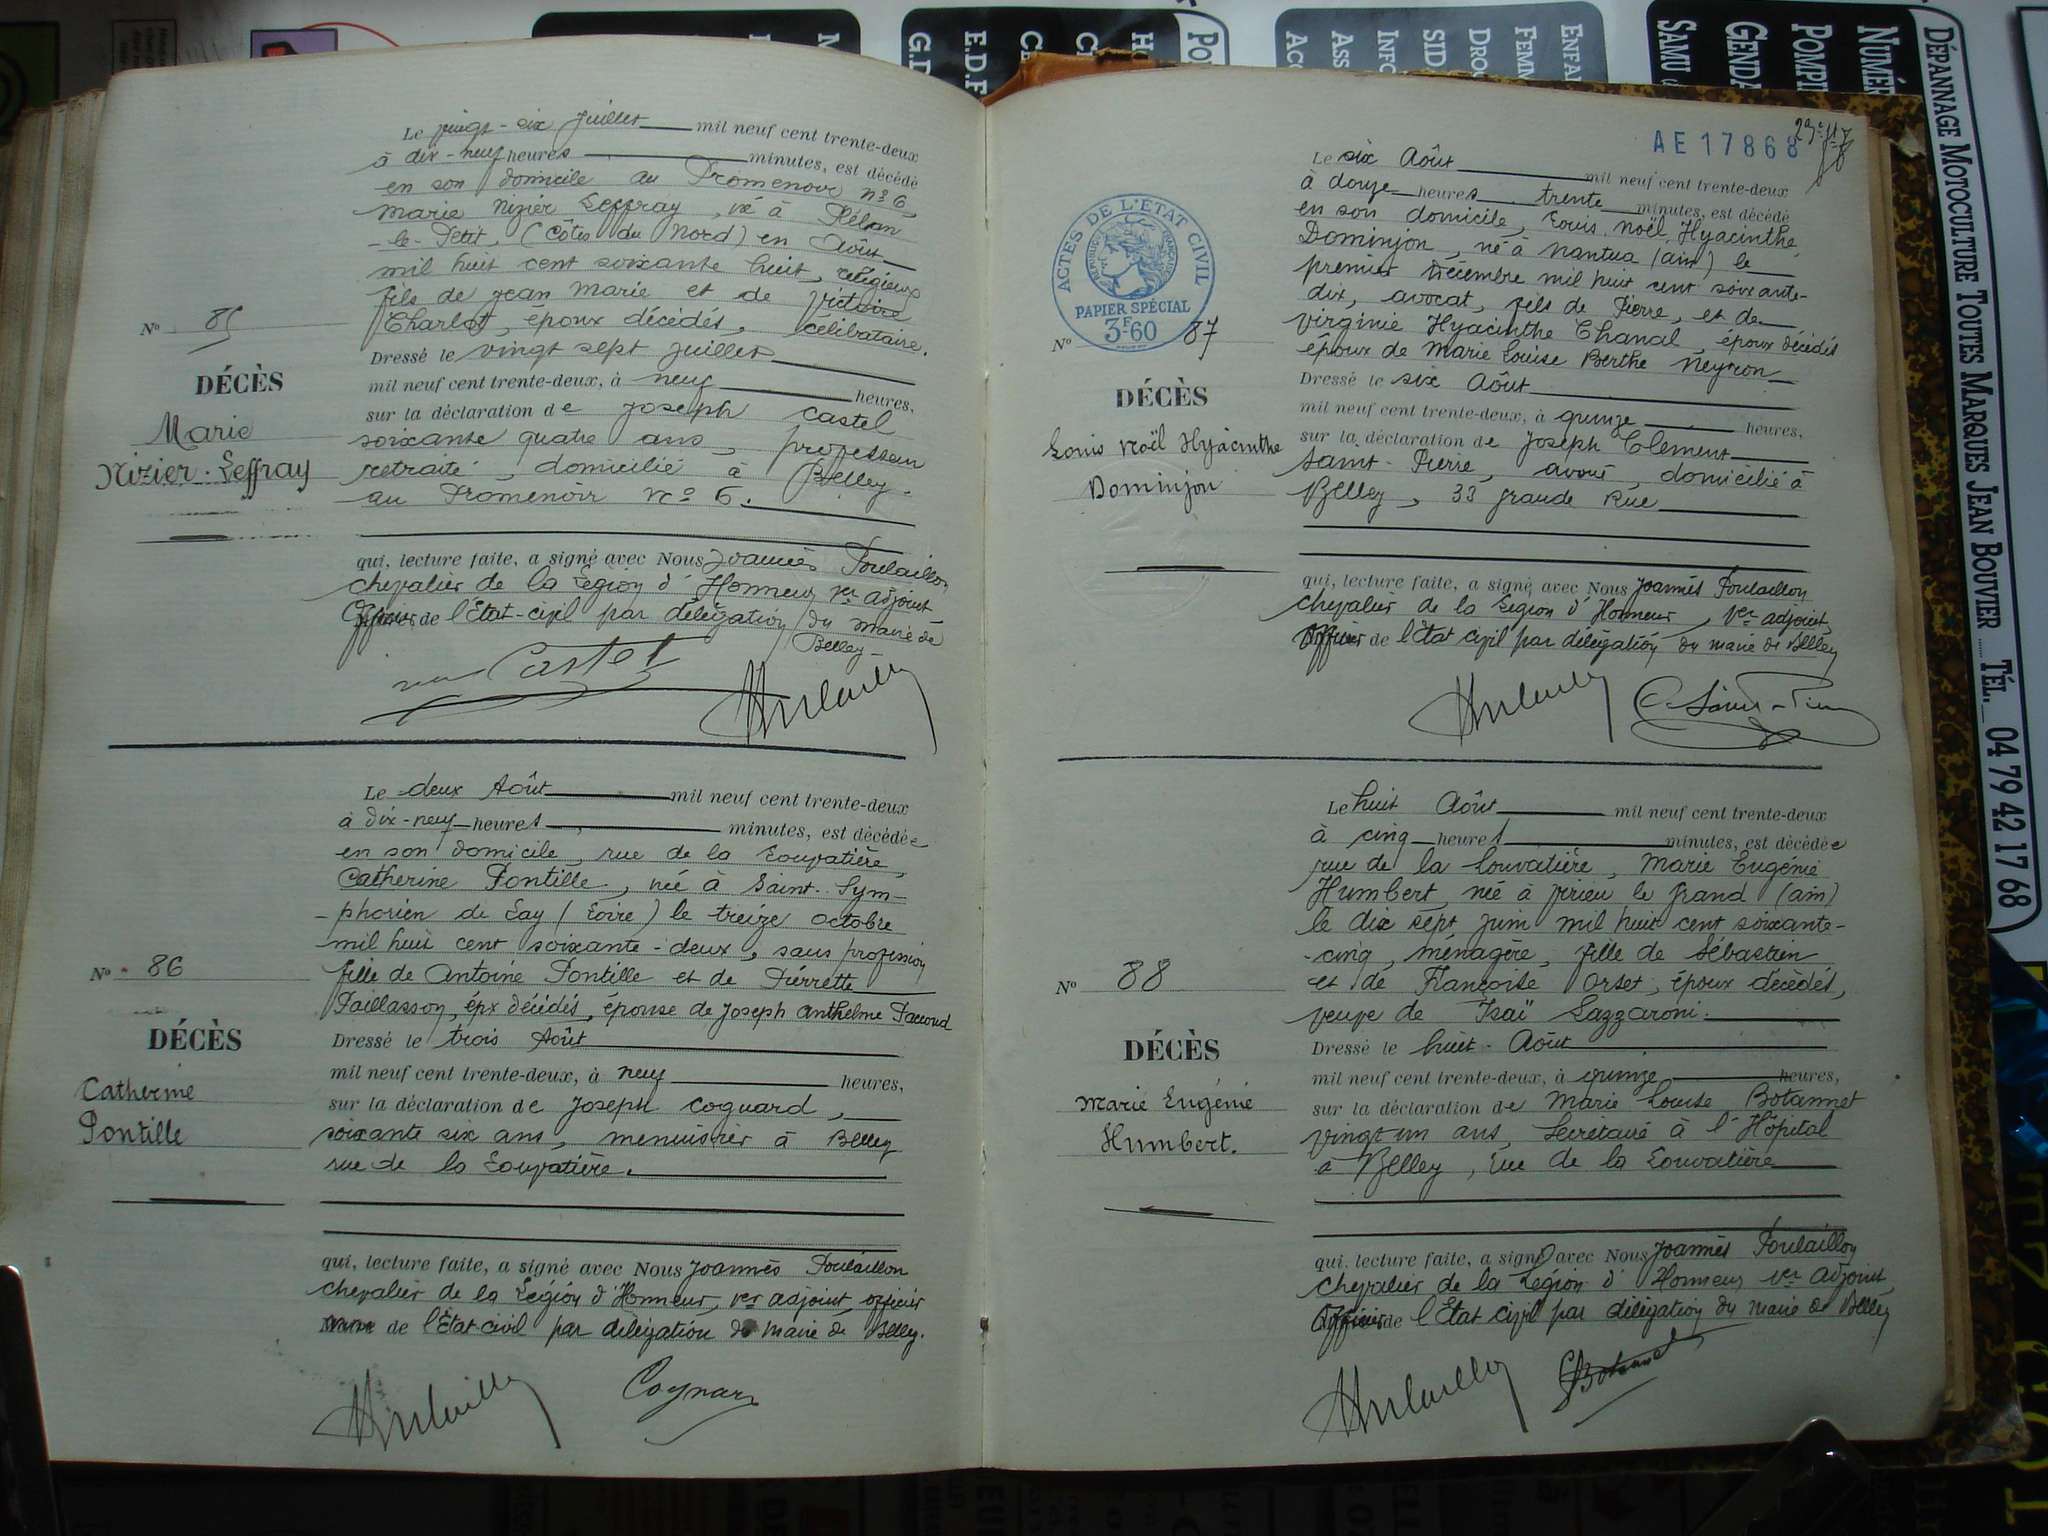 Le vingt-six Juillet mil neuf cent trente-deux
à dix-neuf heures minutes, est décédé
en son domicile au Promenoir n° 6,
Marie Nizier Leffray, né à Plélan
-le-Petit, (Côtes du Nord) en Août
mil huit cent soixante huit, religieux
fils de Jean Marie et de Victoire
Charlot, époux décédés, célibataire.
N° 85
DÉCÈS
Marie
Nizier Leffray
Dressé le vingt sept Juillet
mil neuf cent trente-deux, à neuf heures,
sur la déclaration de Joseph Castel
soixante quatre ans, professeur
retraité, domicilié à Belley
au Promenoir N° 6.
qui, lecture faite, a signé avec Nous Joannès Poulaillon
chevalier de la Légion d'Honneur 1er adjoint
Officier de l'Etat-civil par délégation du maire de
Belley
Castel
Le deux Août mil neuf cent trente-deux
à dix-neuf heures minutes, est décédée
en son domicile, rue de la Louvatière,
Catherine Pontille, née à Saint-Sym-
-phorien de Lay (Loire) le treize octobre
mil huit cent soixante-deux, sans profession
fille de Antoine Pontille et de Pierrette
Paillasson, épx décédés, épouse de Joseph Anthelme Paccoud
N° 86
DÉCÈS
Catherine
Pontille
Dressé le trois Août
mil neuf cent trente-deux, à neuf heures,
sur la déclaration de Joseph Cognard,
soixante six ans, menuisier à Belley
rue de la Louvatière.
qui, lecture faite, a signé avec Nous Joannès Poulaillon
chevalier de la Légion d'Honneur, 1er adjoint, officier
de l'Etat civil par délégation du maire de Belley.
Cognard
AE 17868
ACTES DE L'ÉTAT CIVIL
RÉPUBLIQUE FRANÇAISE
PAPIER SPÉCIAL
3F-60
Le six Août mil neuf cent trente-deux
à douze heures trente minutes, est décédé
en son domicile, Louis Noël Hyacinthe
Dominjon, né à Nantua (ain) le
premier Décembre mil huit cent soixante-
dix, avocat, fils de Pierre, et de
Virginie Hyacinthe Chanal, époux décédés
époux de Marie Louise Berthe Neyron
N° 87
DÉCÈS
Louis Noël Hyacinthe
Dominjon
Dressé le six Août
mil neuf cent trente-deux, à quinze heures,
sur la déclaration de Joseph Clement
Saint-Pierre, avoué, domicilié à
Belley, 33 grande Rue
qui, lecture faite, a signé avec Nous Joannès Poulaillon
chevalier de la Légion d'Honneur, 1er adjoint,
Officier de l'Etat civil par délégation du maire de Belley
C. Saint-Pierre
Le huit Août mil neuf cent trente-deux
à cinq heures minutes, est décédée
rue de la Louvatière, Marie Eugénie
Humbert, née à Virieu le Grand (ain)
le dix sept Juin mil huit cent soixante-
-cinq, ménagère, fille de Sébastien
et de Françoise Orset, époux décédés,
veuve de Isaï Lazzaroni.
N° 88
DÉCÈS
Marie Eugénie
Humbert.
Dressé le huit Août
mil neuf cent trente-deux, à quinze heures,
sur la déclaration de Marie Louise Botannet
vingt un ans, Secrétaire à l'Hôpital
à Belley, rue de la Louvatière
qui, lecture faite, a signé avec Nous Joannès Poulaillon
chevalier de la Légion d'Honneur, 1er adjoint,
Officier de l'Etat civil par délégation du maire de Belley
Botannet
DÉPANNAGE MOTOCULTURE TOUTES MARQUES JEAN BOUVIER ...... TÉL. 04 79 42 17 68
NUMÉR
POMPI
GENDA
SAMU
ENFA
FEMM
DROG
SID
INFO
ASS
ACC
PO
H
C
CA
E.D.F
G.D